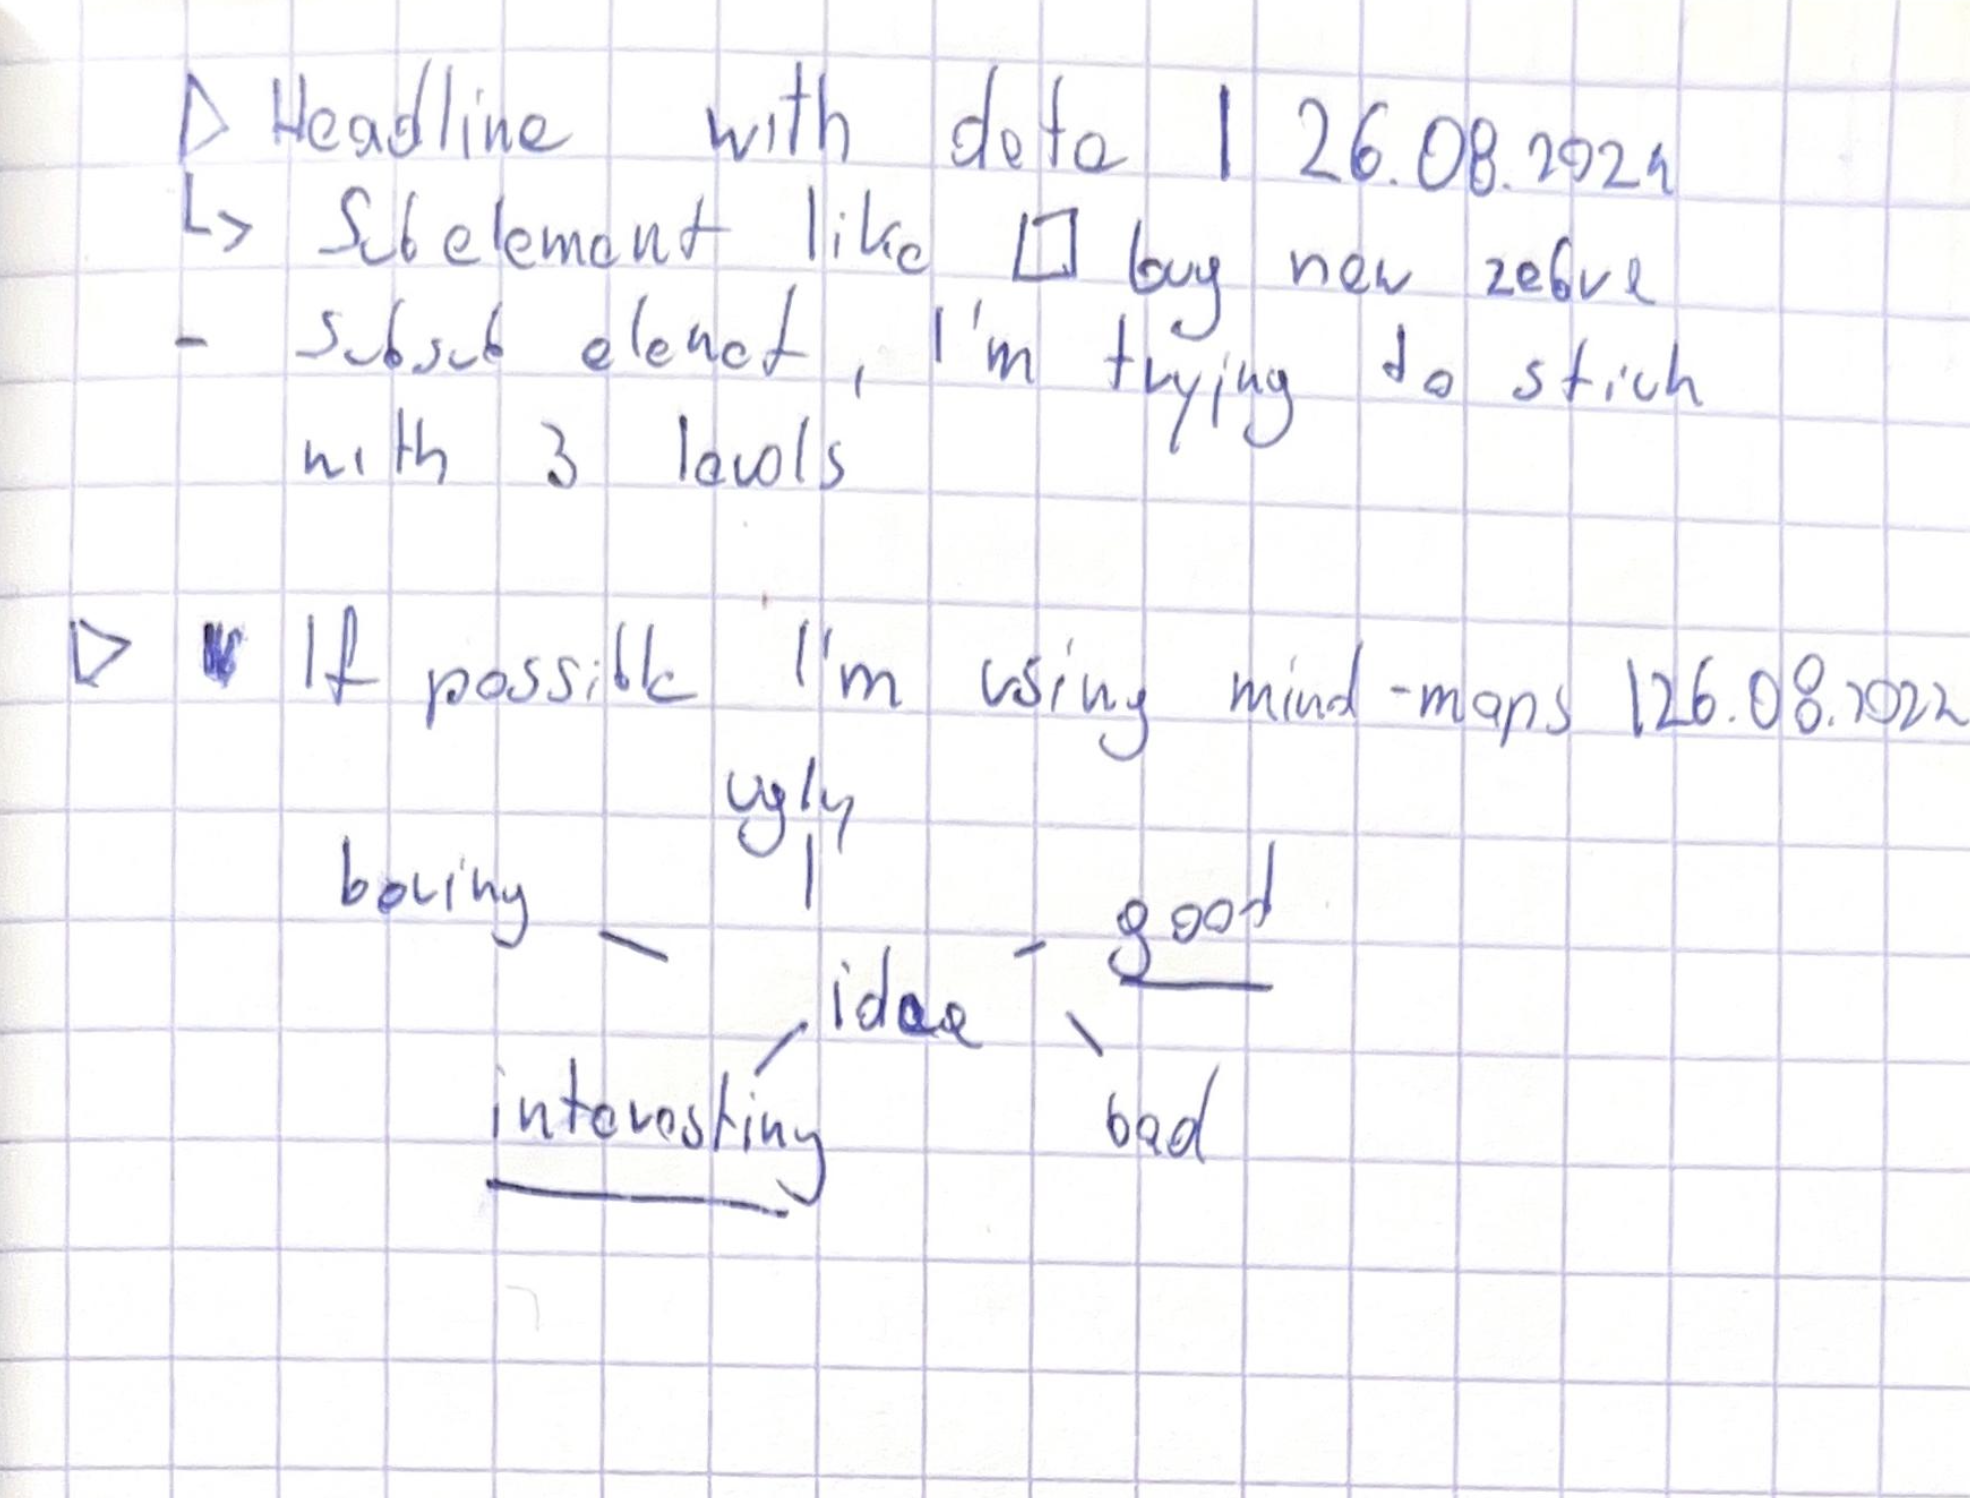 ▷ Headline with data | 26.08.2022
↳ Subelement like ☐ buy new zebra
- subsub elenet, I'm trying to stick
with 3 levels
▷ If possible I'm using mind-maps | 26.08.2022
ugly
boring
good
idea
interesting
bad